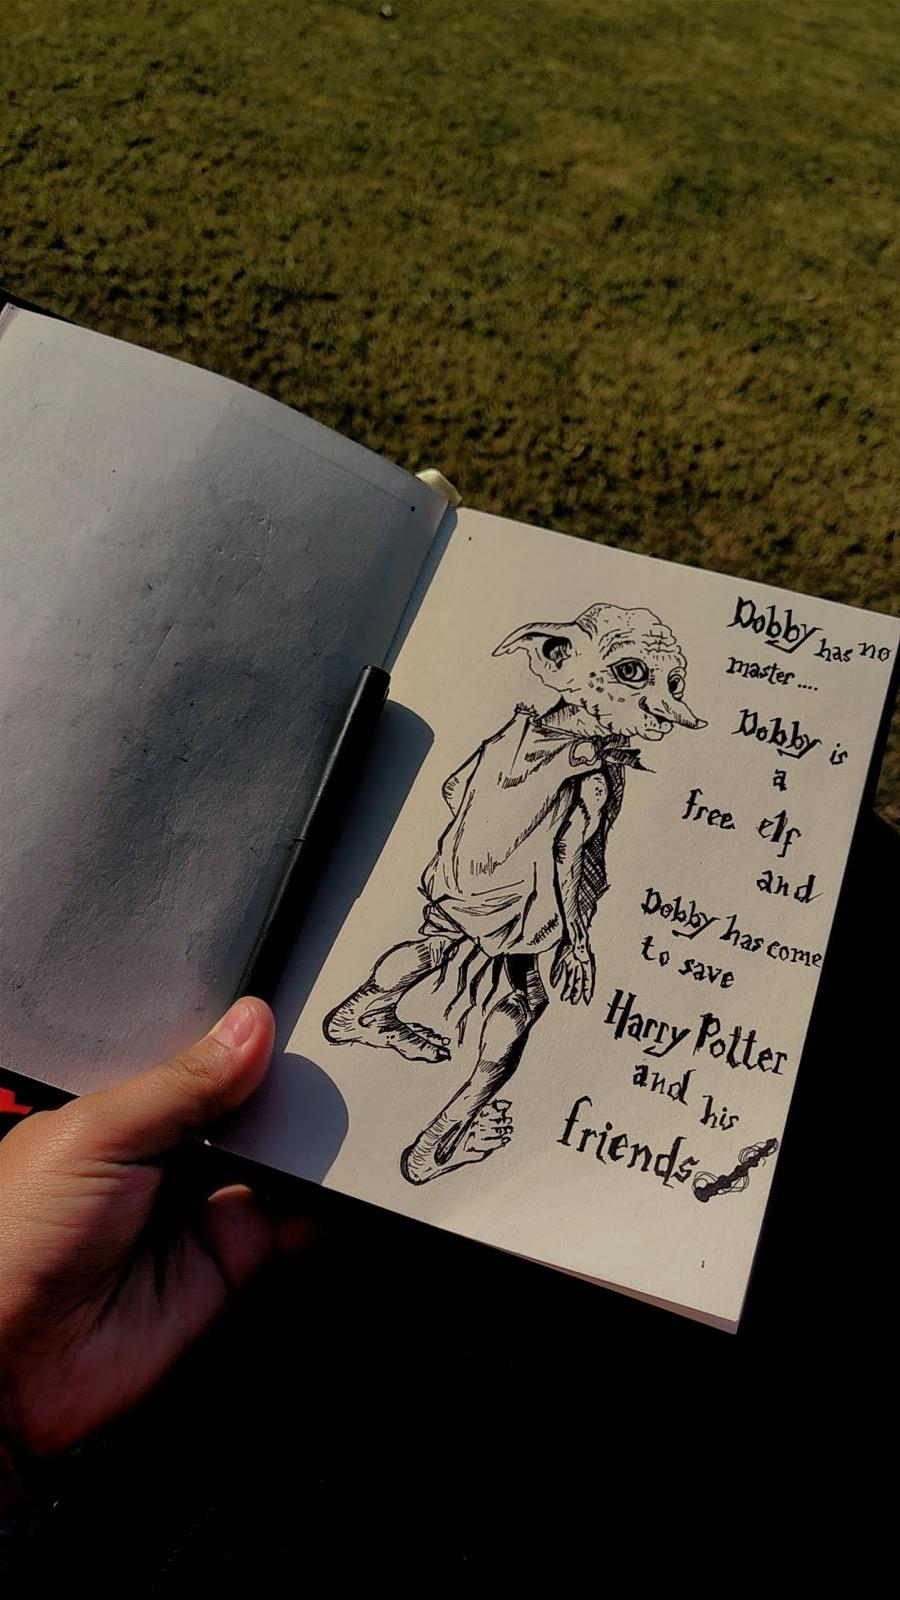 Dobby has no
master....
Dobby is
a
free elf
and
Dobby has come
to save
Harry Potter
and his
friends